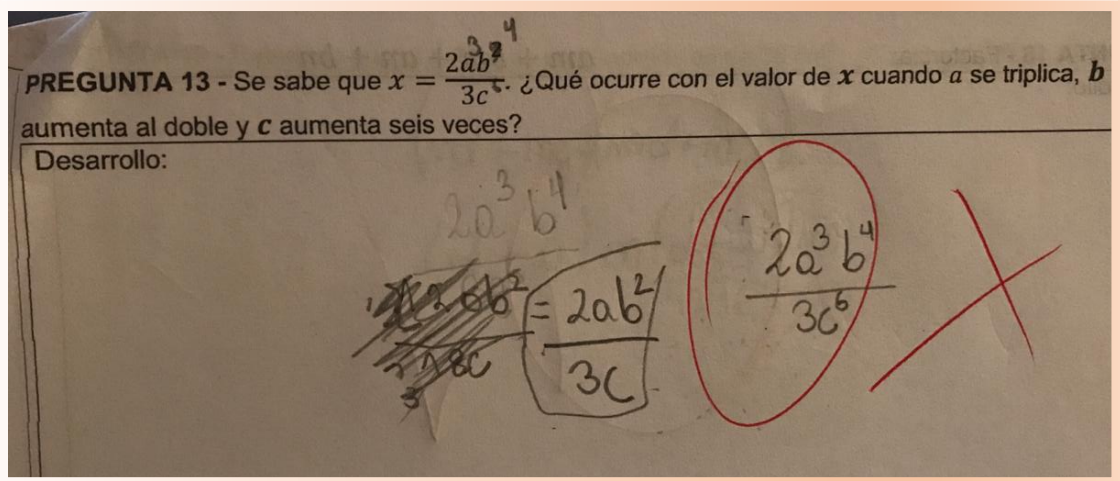 PREGUNTA 13 - Se sabe que x = 2a³b²⁴/3c⁶. ¿Qué ocurre con el valor de x cuando a se triplica, b
aumenta al doble y c aumenta seis veces?
Desarrollo:
2a³b⁴
= 2ab²/3c
2a³b⁴/3c⁶